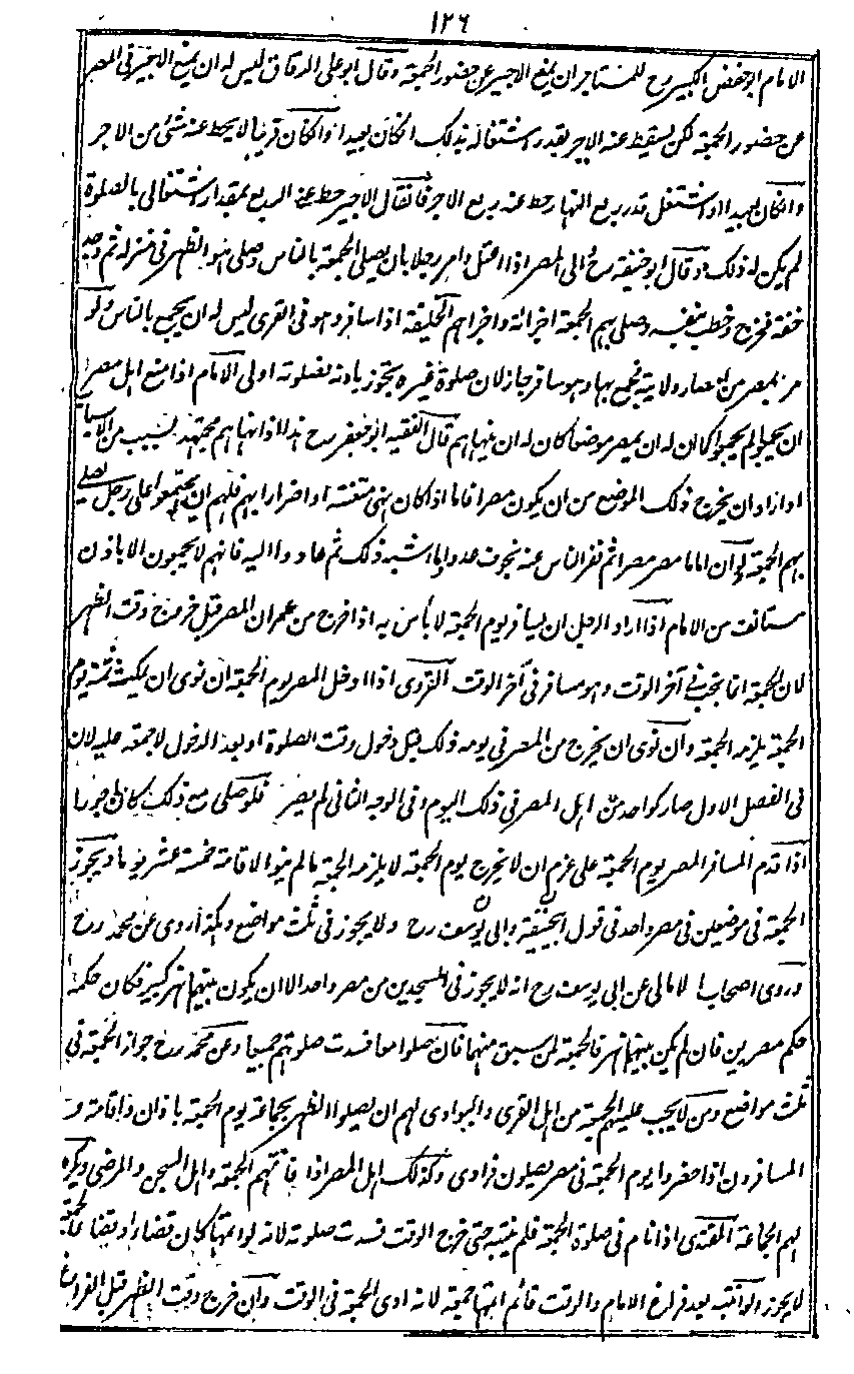 ١٢٦
الامام ابو حفص الكبير رح للمستاجر ان يمنع الاجير عن حضور الجمعة وقال ابو علي الدقاق ليس له ان يمنع الاجير في المصر
عن حضور الجمعة لكن يسقط عنه الاجر بقدر اشتغاله بذلك انكان بعيدا وانكان قريبا لا يحط عنه شئ من الاجر
وانكان بعيدا واشتغل قدر ربع النهار حط عنه ربع الاجر فان قال الاجير حط عنى الربع بمقدار اشتغالي بالصلوة
لم يكن له ذلك وقال ابو حنيفة رح والي المصر اذا اعتل وامر رجلا بان يصلي الجمعة بالناس وصلى هو الظهر في منزله ثم وجد
خفة فخرج وخطب بنفسه وصلى بهم الجمعة اجزاته واجزاهم الخليفة اذا سافر وهو في القرى ليس له ان يجمع بالناس ولو
مر بمصر من امصار ولايته فجمع بها وهو مسافر جاز لان صلوة غيره يجوز باذنه فصلوته اولى الامام اذا منع اهل مصر
ان يجمعوا لم يجمعوا كما ان له ان يمصر موضعا كان له ان ينهاهم قال الفقيه ابو جعفر رح هذا اذا نهاهم مجتهدا بسبب من الاسباب
او اراد ان يخرج ذلك الموضع من ان يكون مصرا فاما اذا كان نهى متعنتا او اضرارا بهم فلهم ان يجتمعوا على رجل يصلي
بهم الجمعة ولو ان اماما مصر مصرا ثم نفر الناس عنه بخوف عدو او ما اشبه ذلك ثم عادوا اليه فانهم لا يجمعون الا باذن
مستانف من الامام اذا اراد الرجل ان يسافر يوم الجمعة لا بأس به اذا خرج من عمران المصر قبل خروج وقت الظهر
لان الجمعة انما تجب في آخر الوقت وهو مسافر في آخر الوقت القروى اذا دخل المصر يوم الجمعة ان نوى ان يمكث ثمه يوم
الجمعة يلزمه الجمعة وان نوى ان يخرج من المصر في يومه ذلك قبل دخول وقت الصلوة او بعد الدخول لا جمعة عليه لان
في الفصل الاول صار كواحد من اهل المصر في ذلك اليوم وفي الوجه الثاني لم يصر فلو صلى مع ذلك كان ماجورا
اذا قدم المسافر المصر يوم الجمعة على عزم ان لا يخرج يوم الجمعة لا يلزمه الجمعة ما لم ينو الاقامة خمسة عشر يوما ويجوز
الجمعة في موضعين في مصر واحد في قول ابي حنيفة وابي يوسف رح ولا يجوز في ثلث مواضع وهكذا روى عن محمد رح
وروى اصحاب الامالي عن ابي يوسف رح انه لا يجوز في المسجدين من مصر واحد الا ان يكون بينهما نهر كبير فكان حكمه
حكم مصرين فان لم يكن بينهما نهر فالجمعة لمن سبق منهما فان صلوا معا فسدت صلوتهم جميعا وعن محمد رح جواز الجمعة في
ثلث مواضع ومن لا يجب عليهم الجمعة من اهل القرى والبوادى لهم ان يصلوا الظهر بجماعة يوم الجمعة باذان واقامة و
المسافرون اذا حضروا يوم الجمعة في مصر يصلون فرادى وكذلك اهل المصر اذا فاتتهم الجمعة واهل السجن والمرضى ويكره
لهم الجماعة المقتدى اذا نام في صلوة الجمعة فلم ينتبه حتى خرج الوقت فسدت صلوته لانه لو اتمها كان قضاء وقضاء الجمعة
لا يجوز ولو انتبه بعد فراغ الامام والوقت قائم اتمها جمعة لانه ادى الجمعة في الوقت وان خرج وقت الظهر قبل الفراغ